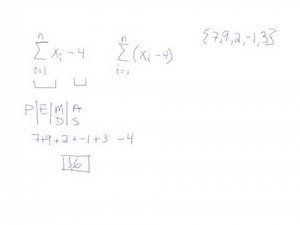 n n
∑ xᵢ - 4 ∑ (xᵢ - 4) {7, 9, 2, -1, 3}
i=1 i=1
P|E|M|A
D|S
7+9+2+-1+3 -4
16